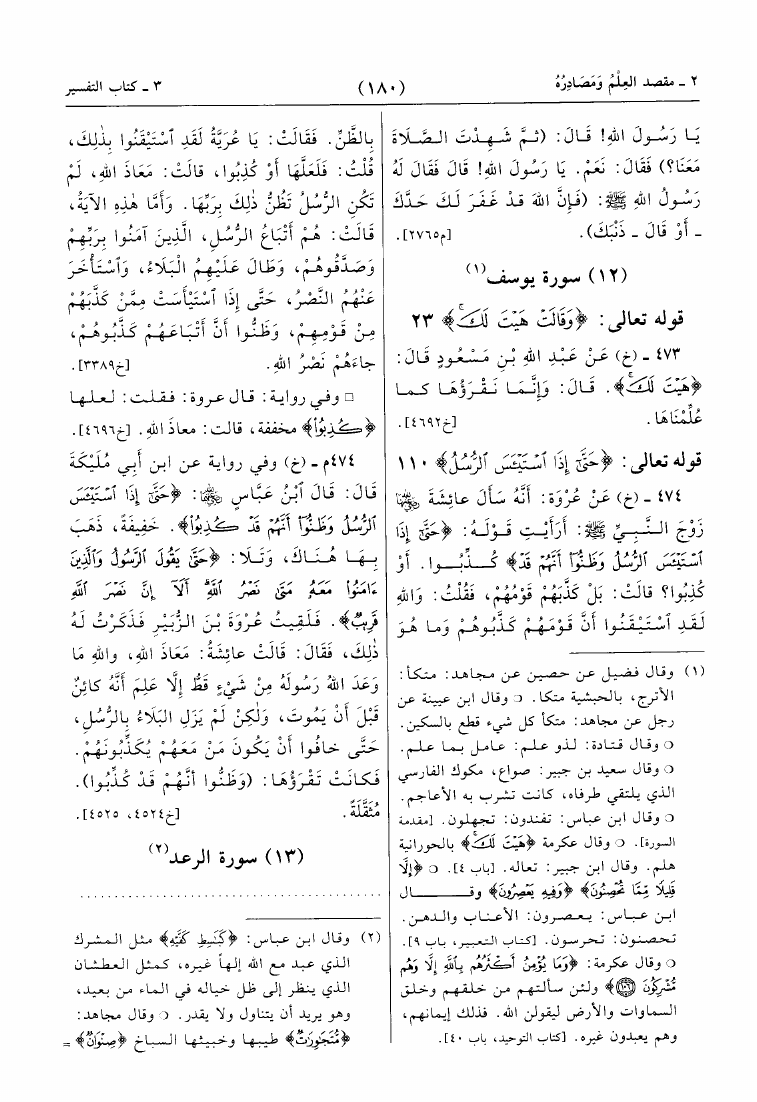 ٢ ـ مقصد العِلْمُ وَمَصَادِرُهُ
(١٨٠)
٣ ـ كتاب التفسير
يَا رَسُولَ اللهِ! قَالَ: (ثُمَّ شَهِدْتَ الصَّلَاةَ
مَعَنَا؟) فَقَالَ: نَعَمْ. يَا رَسُولَ اللهِ! قَالَ فَقَالَ لَهُ
رَسُولُ اللهِ ﷺ: (فَإِنَّ اللهَ قَدْ غَفَرَ لَكَ حَدَّكَ
ـ أَوْ قَالَ ـ ذَنْبَكَ). [م٢٧٦٥].
(١٢) سورة يوسف(١)
قوله تعالى: ﴿وَقَالَتْ هَيْتَ لَكَ﴾ ٢٣
٤٧٣ ـ (خ) عَنْ عَبْدِ اللهِ بْنِ مَسْعُودٍ قَالَ:
﴿هَيْتَ لَكَ﴾. قَالَ: وَإِنَّمَا نَقْرَؤُهَا كما
عُلِّمْنَاهَا. [خ٤٦٩٢].
قوله تعالى: ﴿حَتَّىٰ إِذَا ٱسْتَيْـَٔسَ ٱلرُّسُلُ﴾ ١١٠
٤٧٤ ـ (خ) عَنْ عُرْوَةَ: أَنَّهُ سَأَلَ عائِشَةَ ﵂
زَوْجَ النَّبِيِّ ﷺ: أَرَأَيْتِ قَوْلَهُ: ﴿حَتَّىٰ إِذَا
ٱسْتَيْـَٔسَ ٱلرُّسُلُ وَظَنُّوٓا۟ أَنَّهُمْ قَدْ﴾ كُذِّبُوا. أَوْ
كُذِبُوا؟ قالَتْ: بَلْ كَذَّبَهُمْ قَوْمُهُمْ، فَقُلْتُ: وَاللهِ
لَقَدِ ٱسْتَيْقَنُوا أَنَّ قَوْمَهُمْ كَذَّبُوهُمْ وَما هُوَ
(١) وقال فضيل عن حصين عن مجاهد: متكأ:
الأترج، بالحبشية متكا. ○ وقال ابن عيينة عن
رجل عن مجاهد: متكأ كل شيء قطع بالسكين.
○ وقال قتادة: لذو علم: عامل بما علم.
○ وقال سعيد بن جبير: صواع، مكوك الفارسي
الذي يلتقي طرفاه، كانت تشرب به الأعاجم.
○ وقال ابن عباس: تفندون: تجهلون. [مقدمة
السورة]. ○ وقال عكرمة ﴿هَيْتَ لَكَ﴾ بالحورانية
هلم. وقال ابن جبير: تعاله. [باب ٤]. ○ ﴿إِلَّا
قَلِيلًا مِّمَّا تُحْصِنُونَ﴾ ﴿وَفِيهِ يَعْصِرُونَ﴾ وقـــال
ابن عباس: يعصرون: الأعناب والدهن.
تحصنون: تحرسون. [كتاب التعبير، باب ٩].
○ وقال عكرمة: ﴿وَمَا يُؤْمِنُ أَكْثَرُهُم بِٱللَّهِ إِلَّا وَهُم
مُّشْرِكُونَ ۝١٠٦﴾ ولئن سألتهم من خلقهم وخلق
السماوات والأرض ليقولن الله. فذلك إيمانهم،
وهم يعبدون غيره. [كتاب التوحيد، باب ٤٠].
بِالظَّنِّ. فَقَالَتْ: يَا عُرَيَّةُ لَقَدِ ٱسْتَيْقَنُوا بِذٰلِكَ،
قُلْتُ: فَلَعَلَّهَا أَوْ كُذِبُوا، قالَتْ: مَعَاذَ اللهِ، لَمْ
تَكُنِ الرُّسُلُ تَظُنُّ ذٰلِكَ بِرَبِّهَا. وَأَمَّا هٰذِهِ الآيَةُ،
قالَتْ: هُمْ أَتْبَاعُ الرُّسُلِ، الَّذِينَ آمَنُوا بِرَبِّهِمْ
وَصَدَّقُوهُمْ، وَطَالَ عَلَيْهِمُ الْبَلَاءُ، وَٱسْتَأْخَرَ
عَنْهُمُ النَّصْرُ، حَتَّى إِذَا ٱسْتَيْأَسَتْ مِمَّنْ كَذَّبَهُمْ
مِنْ قَوْمِهِمْ، وَظَنُّوا أَنَّ أَتْبَاعَهُمْ كَذَّبُوهُمْ،
جاءَهُمْ نَصْرُ اللهِ. [خ٣٣٨٩].
□ وفي رواية: قال عروة: فقلت: لعلها
﴿كُذِبُوا۟﴾ مخففة، قالت: معاذ الله. [خ٤٦٩٦].
٤٧٤م ـ (خ) وفي رواية عن ابن أَبِي مُلَيْكَةَ
قَالَ: قَالَ ٱبْنُ عَبَّاسٍ ﵄: ﴿حَتَّىٰ إِذَا ٱسْتَيْـَٔسَ
ٱلرُّسُلُ وَظَنُّوٓا۟ أَنَّهُمْ قَدْ كُذِبُوا۟﴾. خَفِيفَةً، ذَهَبَ
بِهَا هُنَاكَ، وَتَلَا: ﴿حَتَّىٰ يَقُولَ ٱلرَّسُولُ وَٱلَّذِينَ
ءَامَنُوا۟ مَعَهُۥ مَتَىٰ نَصْرُ ٱللَّهِ أَلَآ إِنَّ نَصْرَ ٱللَّهِ
قَرِيبٌ﴾. فَلَقِيتُ عُرْوَةَ بْنَ الزُّبَيْرِ فَذَكَرْتُ لَهُ
ذٰلِكَ، فَقَالَ: قَالَتْ عائِشَةُ: مَعَاذَ اللهِ، واللهِ مَا
وَعَدَ اللهُ رَسُولَهُ مِنْ شَيْءٍ قَطُّ إِلَّا عَلِمَ أَنَّهُ كائِنٌ
قَبْلَ أَنْ يَمُوتَ، وَلٰكِنْ لَمْ يَزَلِ الْبَلَاءُ بِالرُّسُلِ،
حَتَّى خافُوا أَنْ يَكُونَ مَنْ مَعَهُمْ يُكَذِّبُونَهُمْ.
فَكانَتْ تَقْرَؤُهَا: (وَظَنُّوا أَنَّهُمْ قَدْ كُذِّبُوا).
مُثَقَّلَةً. [خ٤٥٢٤، ٤٥٢٥].
(١٣) سورة الرعد(٢)
................................................
(٢) وقال ابن عباس: ﴿كَبَٰسِطِ كَفَّيْهِ﴾ مثل المشرك
الذي عبد مع الله إلهاً غيره، كمثل العطشان
الذي ينظر إلى ظل خياله في الماء من بعيد،
وهو يريد أن يتناول ولا يقدر. ○ وقال مجاهد:
﴿مُّتَجَٰوِرَٰتٌ﴾ طيبها وخبيثها السباخ ﴿صِنْوَانٌ﴾ =